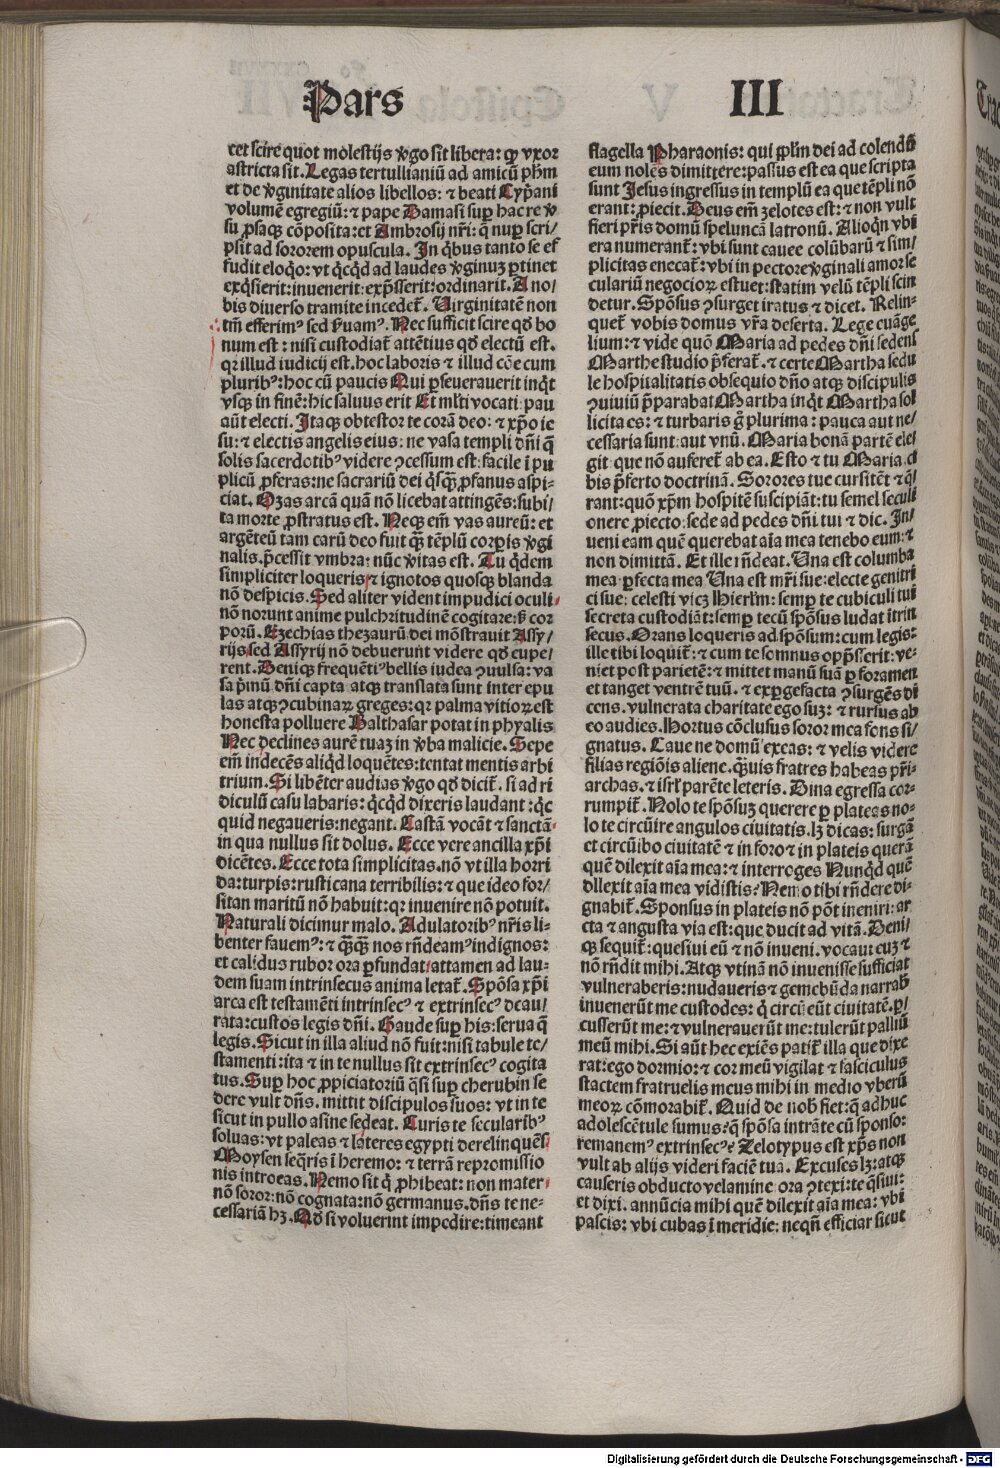 Pars III
cet scire quot molestijs v̾go sit libera: qꝫ vxor
astricta sit. Legas tertullianū ad amicū ph̄m
et de v̾ginitate alios libellos: ⁊ beati Cypͥani
volumē egregiū: ⁊ pape Damasi suꝑ hac re v̾
su ꝓsaqꝫ cōposita: et Ambrosij nr̄i: q̄ nuꝑ scri/
psit ad sororem opuscula. In qͥbus tanto se ef
fudit eloqͥo: vt qͥcqͥd ad laudes v̾ginuꝫ ꝑtinet
exqͥsierit: inuenerit: exp̄sserit: ordinarit. A no/
bis diuerso tramite incedet᷑. Uirginitatē non
tm̄ efferimꝰ sed ẜuamꝰ. Nec sufficit scire qd̓ bo
num est: nisi custodiat᷑ attētius qd̓ electū est.
qꝛ illud iudicij est. hoc laboris ⁊ illud cōe cum
pluribꝰ: hoc cū paucis Qui ꝑseuerauerit inqͥt
vsqꝫ in finē: hic saluus erit Et ml̓ti vocati pau
aūt electi. Itaqꝫ obtestor te corā deo: ⁊ xp̄o ie
su: ⁊ electis angelis eius: ne vasa templi dn̄i q̄
solis sacerdotibꝰ videre ꝯcessum est: facile ī pu
plicū ꝓferas: ne sacrariū dei qͥsqͣꝫ ꝓfanus aspi-
ciat. Ozas arcā quā nō licebat attingēs: subi/
ta morte ꝓstratus est. Neqꝫ em̄ vas aureū: et
argēteū tam carū deo fuit qͣꝫ tēplū corꝑis v̾gi
nalis. p̄cessit vmbra: nūc v̾itas est. Tu qͥdem
simpliciter loqueris ⁊ ignotos quosqꝫ blanda
nō despicis. Sed aliter vident impudici oculi
nō norunt anime pulchritudinē cogitare: ẜ cor
porū. Ezechias thezaurū dei mōstrauit Assy/
rijs sed Assyrij nō debuerunt videre qd̓ cupe/
rent. Deniqꝫ frequētiꝰ bellis iudea ꝯuulsa: va
sa pͥmū dn̄i capta atqꝫ translata sunt inter epu
las atqꝫ ꝯcubinaꝝ greges: qꝛ palma vitioꝝ est
honesta polluere Balthasar potat in phyalis
Nec declines aurē tuaꝫ in v̾ba malicie. Sepe
em̄ indecēs aliqͥd loquētes: tentat mentis arbi
trium. Si libēter audias v̾go qd̓ dicit᷑. si ad ri
diculū casu labaris: qͥcqͥd dixeris laudant: qͥc
quid negaueris: negant. Castā vocāt ⁊ sanctā
in qua nullus sit dolus. Ecce vere ancilla xp̄i
dicētes. Ecce tota simplicitas. nō vt illa horri
da: turpis: rusticana terribilis: ⁊ que ideo for/
sitan maritū nō habuit: qꝛ inuenire nō potuit.
Naturali dicimur malo. Adulatoribꝰ nr̄is li-
benter fauemꝰ: ⁊ qͣꝫqͣꝫ nos rn̄deamꝰ indignos:
et calidus rubor ora ꝑfundat attamen ad lau-
dem suam intrinsecus anima letat᷑. Spōsa xp̄i
arca est testamēti intrinsecꝰ ⁊ extrinsecꝰ deau/
rata: custos legis dn̄i. Gaude suꝑ his: serua q̄
legis. Sicut in illa aliud nō fuit: nisi tabule te/
stamenti: ita ⁊ in te nullus sit extrinsecꝰ cogita
tus. Suꝑ hoc ꝓpiciatoriū qͣsi suꝑ cherubin se
dere vult dn̄s. mittit discipulos suos: vt in te
sicut in pullo asine sedeat. Curis te secularibꝰ
soluas: vt paleas ⁊ lateres egypti derelinquēs
Moysen seqͣris ī heremo: ⁊ terrā repromissio
nis introeas. Nemo sit qͥ ꝓhibeat: non mater
nō soror: nō cognata: nō germanus. dn̄s te ne-
cessariā hꝫ. Qd̓ si voluerint impedire: timeant
flagella Pharaonis: qui pp̄lm dei ad colendū
eum nolēs dimittere: passus est ea que scripta
sunt Jesus ingressus in templū ea que tēpli nō
erant: ꝓiecit. Deus em̄ zelotes est: ⁊ non vult
fieri pr̄is domū speluncā latronū. Alioqͥn vbi
era numerant᷑: vbi sunt cauee colūbarū ⁊ sim/
plicitas enecat᷑: vbi in pectore v̾ginali amor se
culariū negocioꝝ estuet: statim velū tēpli scin
detur. Spōsus ꝯsurget iratus ⁊ dicet. Relin-
quet᷑ vobis domus vr̄a deserta. Lege euāge
lium: ⁊ vide quō Maria ad pedes dn̄i sedens
Marthe studio p̄ferat᷑. ⁊ certe Martha sedu
le hospitalitatis obsequio dn̄o atqꝫ discipulis
ꝯuiuiū p̄parabat Martha inqͥt Martha sol
licita es: ⁊ turbaris g̊ plurima: pauca aut ne/
cessaria sunt: aut vnū. Maria bonā partē ele
git que nō auferet᷑ ab ea. Esto ⁊ tu Maria. ci
bis p̄ferto doctrinā. Sorores tue cursitēt ⁊ q̄/
rant: quō xp̄m hospitē suscipiāt: tu semel seculi
onere ꝓiecto: sede ad pedes dn̄i tui ⁊ dic. In/
ueni eam quē querebat aīa mea tenebo eum: ⁊
non dimittā. Et ille rn̄deat. Una est columba
mea ꝑfecta mea Una est mr̄i sue: electe genitri
ci sue: celesti vicꝫ Hierl̄m: semꝑ te cubiculi tui
secreta custodiāt: semꝑ tecū spōsus ludat ītrin
secus. Orans loqueris ad spōsum: cum legis:
ille tibi loquit᷑: ⁊ cum te somnus opp̄sserit: ve-
niet post parietē: ⁊ mittet manū suā ꝑ foramen
et tanget ventrē tuū. ⁊ exꝑgefacta ꝯsurgēs di
cens. vulnerata charitate ego suꝫ: ⁊ rursus ab
eo audies. Hortus cōclusus soror mea fons si/
gnatus. Caue ne domū exeas: ⁊ velis videre
filias regiōis aliene. qͣꝫuis fratres habeas pr̄i-
archas. ⁊ isrl̓ parēte leteris. Dina egressa cor-
rumpit᷑. Nolo te spōsuꝫ querere ꝑ plateas no-
lo te circūire angulos ciuitatis. lꝫ dicas: surgā
et circūibo ciuitatē ⁊ in foro ⁊ in plateis querā
quē dilexit aīa mea: ⁊ interroges Nunqͥd quē
dilexit aīa mea vidistis? Nemo tibi rn̄dere di-
gnabit᷑. Sponsus in plateis nō pōt ineniri: ar
cta ⁊ angusta via est: que ducit ad vitā. Deni/
qꝫ sequit᷑: quesiui eū ⁊ nō inueni. vocaui euꝫ ⁊
nō rn̄dit mihi. Atqꝫ vtinā nō inuenisse sufficiat
vulneraberis: nudaueris ⁊ gemebūda narrab̓
inuenerūt me custodes: qͥ circūeūt ciuitatē. ꝑ/
cusserūt me: ⁊ vulnerauerūt me: tulerūt palliū
meū mihi. Si aūt hec exiēs patit᷑ illa que dixe
rat: ego dormio: ⁊ cor meū vigilat ⁊ fasciculus
stactem fratruelis meus mihi in medio vberū
meoꝝ cōmorabit᷑. Quid de nob̓ fiet: q̄ adhuc
adolescētule sumus? q̄ spōsa intrāte cū sponso:
remanemꝰ extrinsecꝰ? Zelotypus est xp̄s non
vult ab alijs videri faciē tuā. Excuses lꝫ: atqꝫ
causeris obducto velamine ora ꝯtexi: te qͣsiui:
et dixi. annūcia mihi quē dilexit aīa mea: vbi
pascis: vbi cubas ī meridie: neqn̄ efficiar sicut
Digitalisierung gefördert durch die Deutsche Forschungsgemeinschaft - DFG